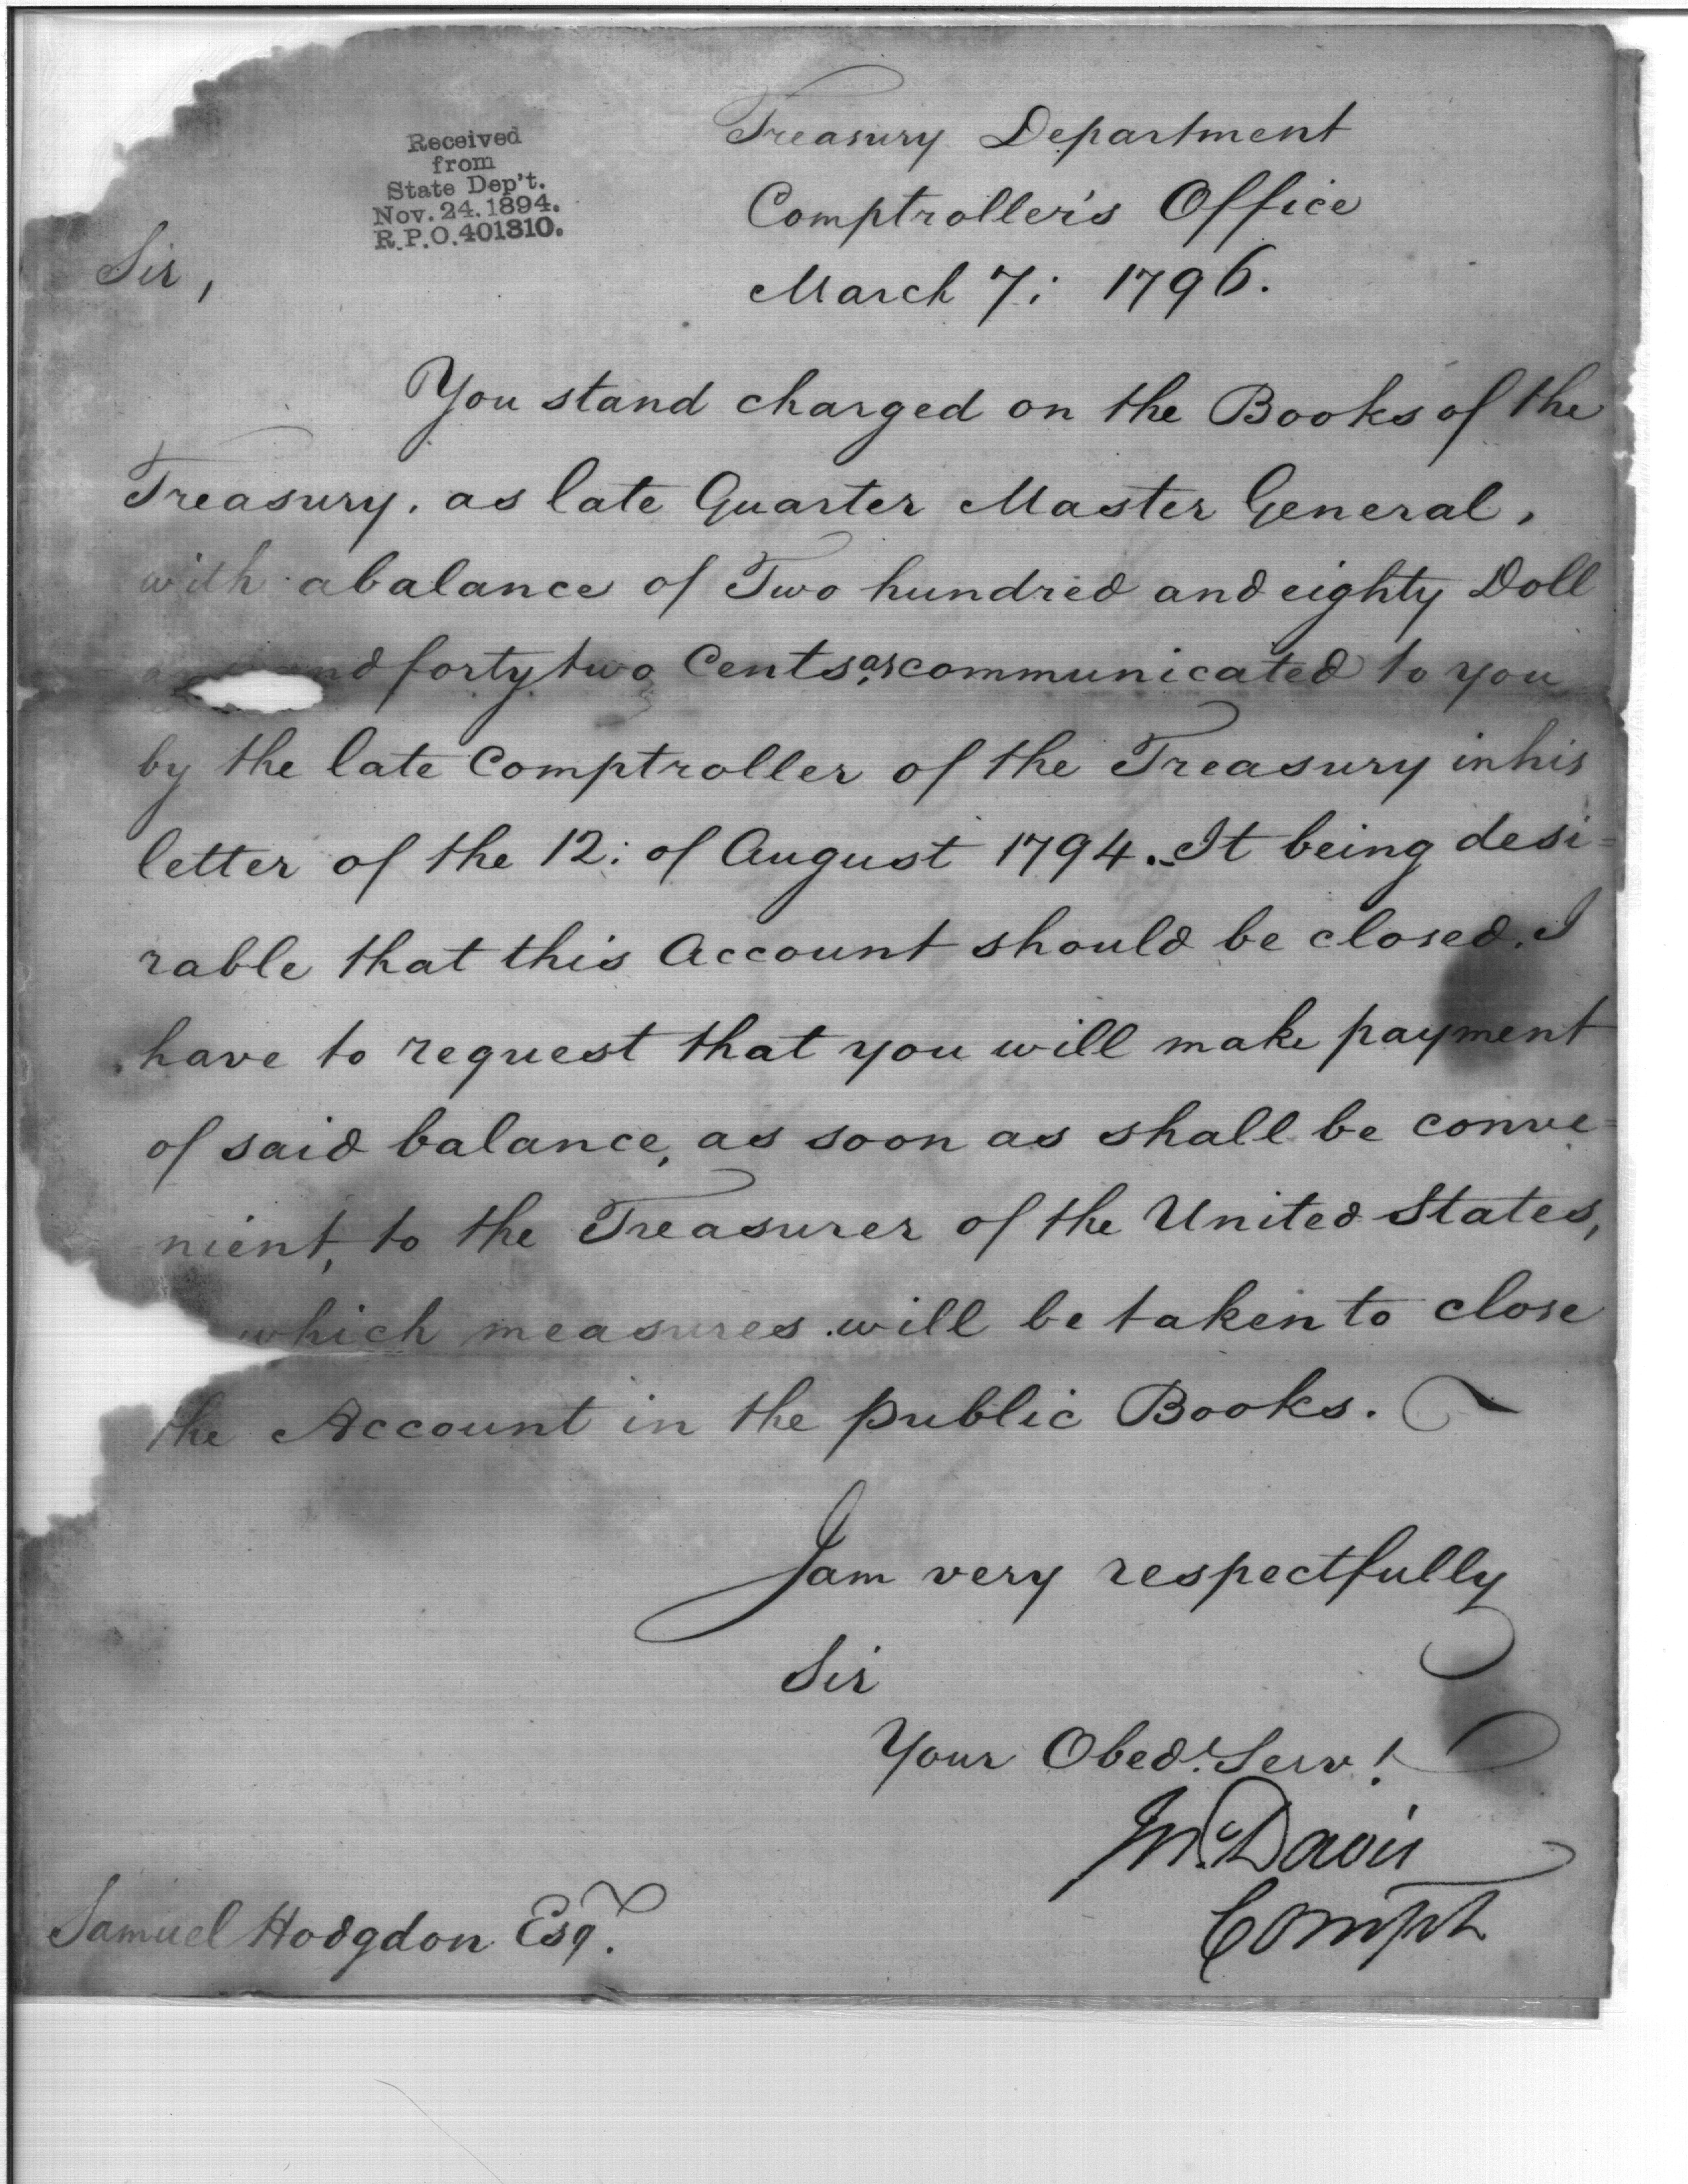 Received
from
State Dep't.
Nov. 24. 1894.
R.P.O. 401310.
Treasury Department
Comptroller's Office
March 7: 1796.
Sir,
You stand charged on the Books of the
Treasury, as late Quarter Master General,
with a balance of Two hundred and eighty Doll
nd forty two Cents, as communicated to you
by the late Comptroller of the Treasury in his
letter of the 12: of August 1794. It being desi=
rable that this Account should be closed. I
have to request that you will make payment
of said balance, as soon as shall be conve=
nient, to the Treasurer of the United States,
which measures will be taken to close
the Account in the public Books.
I am very respectfully
Sir
Your Obed.t Serv.t
Jn.o Davis
Compt
Samuel Hodgdon Esq.r